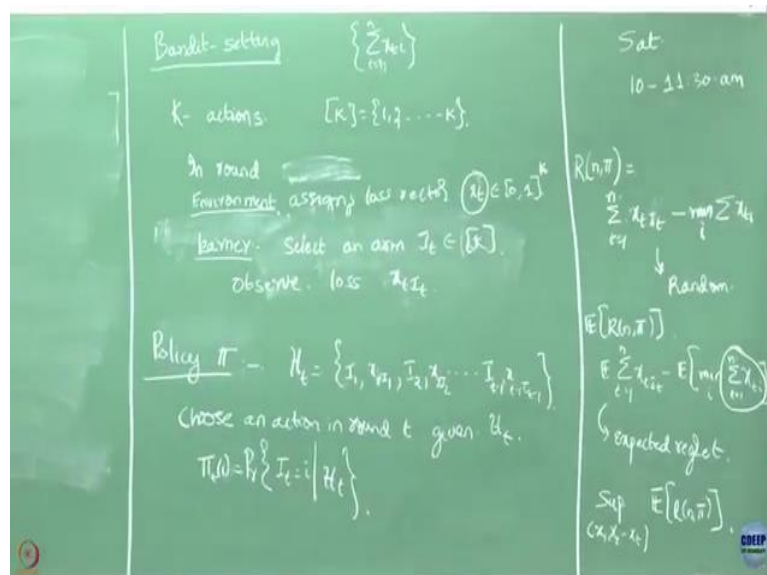 Bandit-setting { ∑_{t=1}^{n} x_{ti} }
K- actions. [K]={1,2,....K}.
In round
Environment assigns loss vector x_t ∈ [0,1]^K
Learner. Select an arm I_t ∈ [K].
Observe. loss x_{tI_t}
Policy π – H_t = {I_1, x_{1I_1}, I_2, x_{2I_2} .... I_{t-1}, x_{t-1,I_{t-1}}}
Choose an action in round t given H_t.
π_t(i) = Pr{ I_t = i | H_t }.
Sat
10-11:30 am
R(n,π) =
∑_{t=1}^{n} x_{tI_t} – min_i ∑ x_{ti}
↓
Random.
E[R(n,π)].
E ∑_{t=1}^{n} x_{tI_t} – E[min_i ∑_{t=1}^{n} x_{ti}]
↳ Expected regret.
Sup_{(x_1,x_2-x_t)} E[R(n,π)].
CDEEP